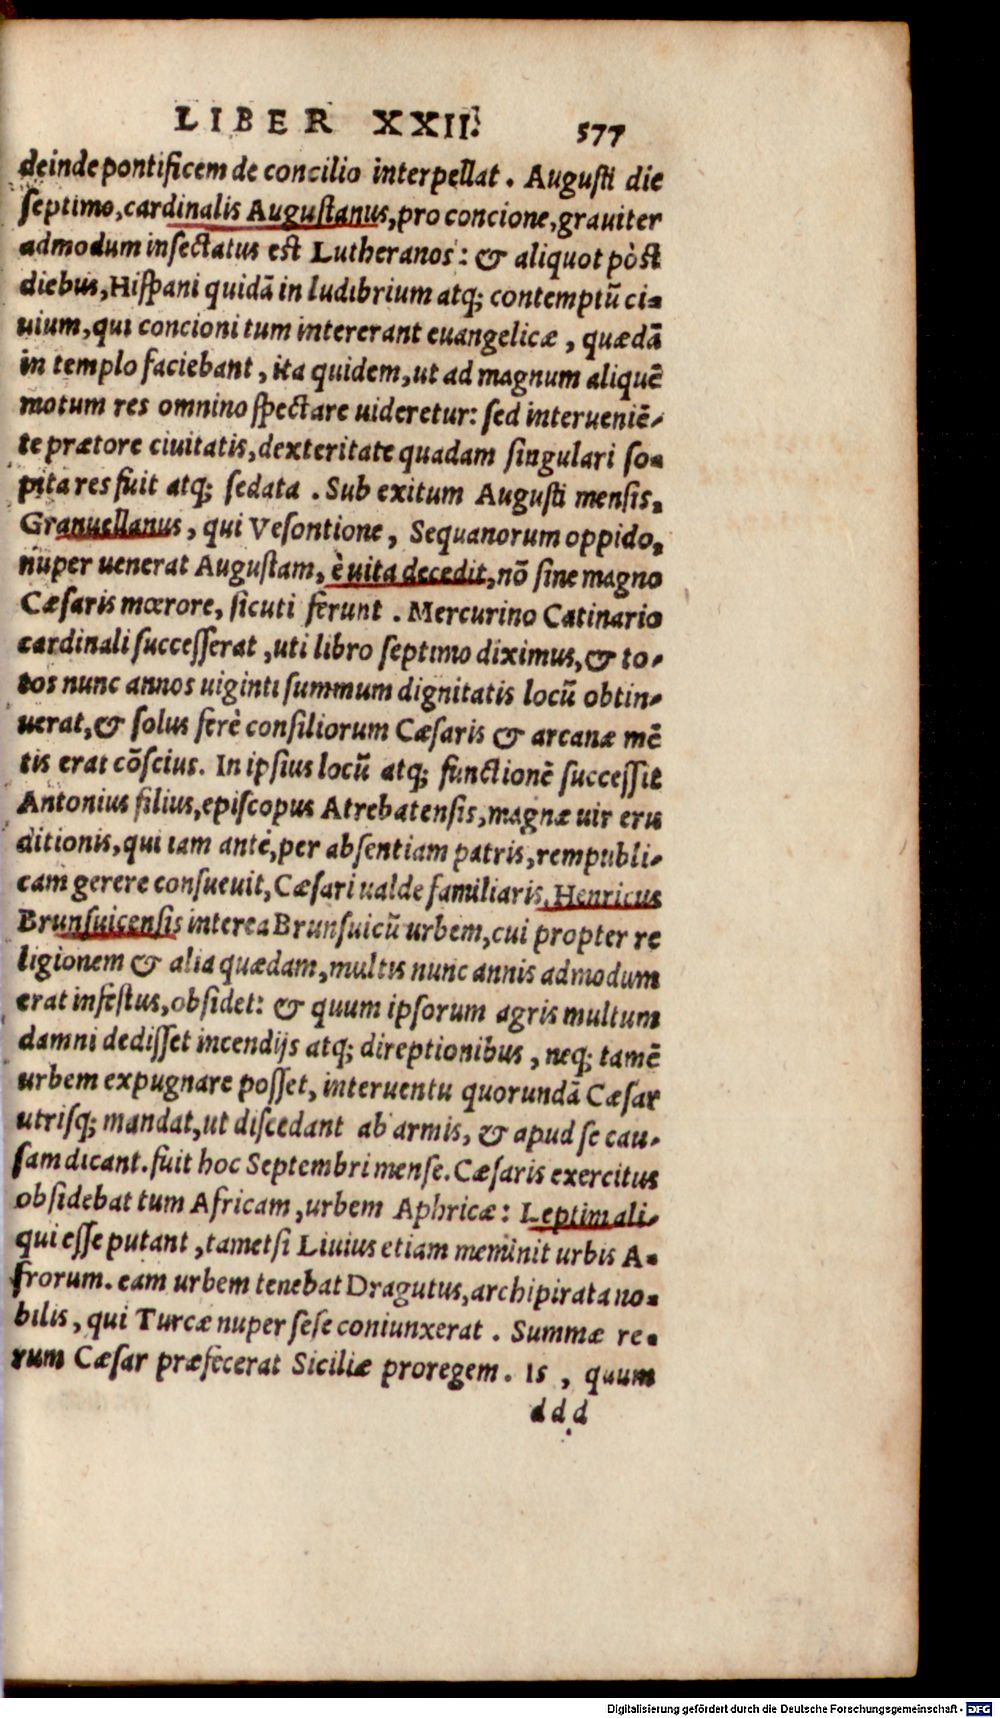 LIBER XXII. 577
deinde pontificem de concilio interpellat. Augusti die
septimo, cardinalis Augustanus, pro concione, grauiter
admodum insectatus est Lutheranos: & aliquot pòst
diebus, Hispani quidā in ludibrium atq; contemptū ci-
uium, qui concioni tum intererant euangelicæ, quædā
in templo faciebant, ita quidem, ut ad magnum aliquē
motum res omnino spectare uideretur: sed interueniē-
te prætore ciuitatis, dexteritate quadam singulari so-
pita res fuit atq; sedata. Sub exitum Augusti mensis,
Granuellanus, qui Vesontione, Sequanorum oppido,
nuper uenerat Augustam, è uita decedit, nō sine magno
Cæsaris mœrore, sicuti ferunt. Mercurino Catinario
cardinali successerat, uti libro septimo diximus, & to-
tos nunc annos uiginti summum dignitatis locū obtin-
uerat, & solus ferè consiliorum Cæsaris & arcanæ mē
tis erat cōscius. In ipsius locū atq; functionē successit
Antonius filius, episcopus Atrebatensis, magnæ uir eru
ditionis, qui iam antè, per absentiam patris, rempubli-
cam gerere consueuit, Cæsari ualde familiaris. Henricus
Brunsuicensis interea Brunsuicū urbem, cui propter re
ligionem & alia quædam, multis nunc annis admodum
erat infestus, obsidet: & quum ipsorum agris multum
damni dedisset incendijs atq; direptionibus, neq; tamē
urbem expugnare posset, interuentu quorundā Cæsar
utrisq; mandat, ut discedant ab armis, & apud se cau-
sam dicant. fuit hoc Septembri mense. Cæsaris exercitus
obsidebat tum Africam, urbem Aphricæ: Leptim ali-
qui esse putant, tametsi Liuius etiam meminit urbis A-
frorum. eam urbem tenebat Dragutus, archipirata no-
bilis, qui Turcæ nuper sese coniunxerat. Summæ re-
rum Cæsar præfecerat Siciliæ proregem. Is, quum
ddd
Digitalisierung gefördert durch die Deutsche Forschungsgemeinschaft - DFG